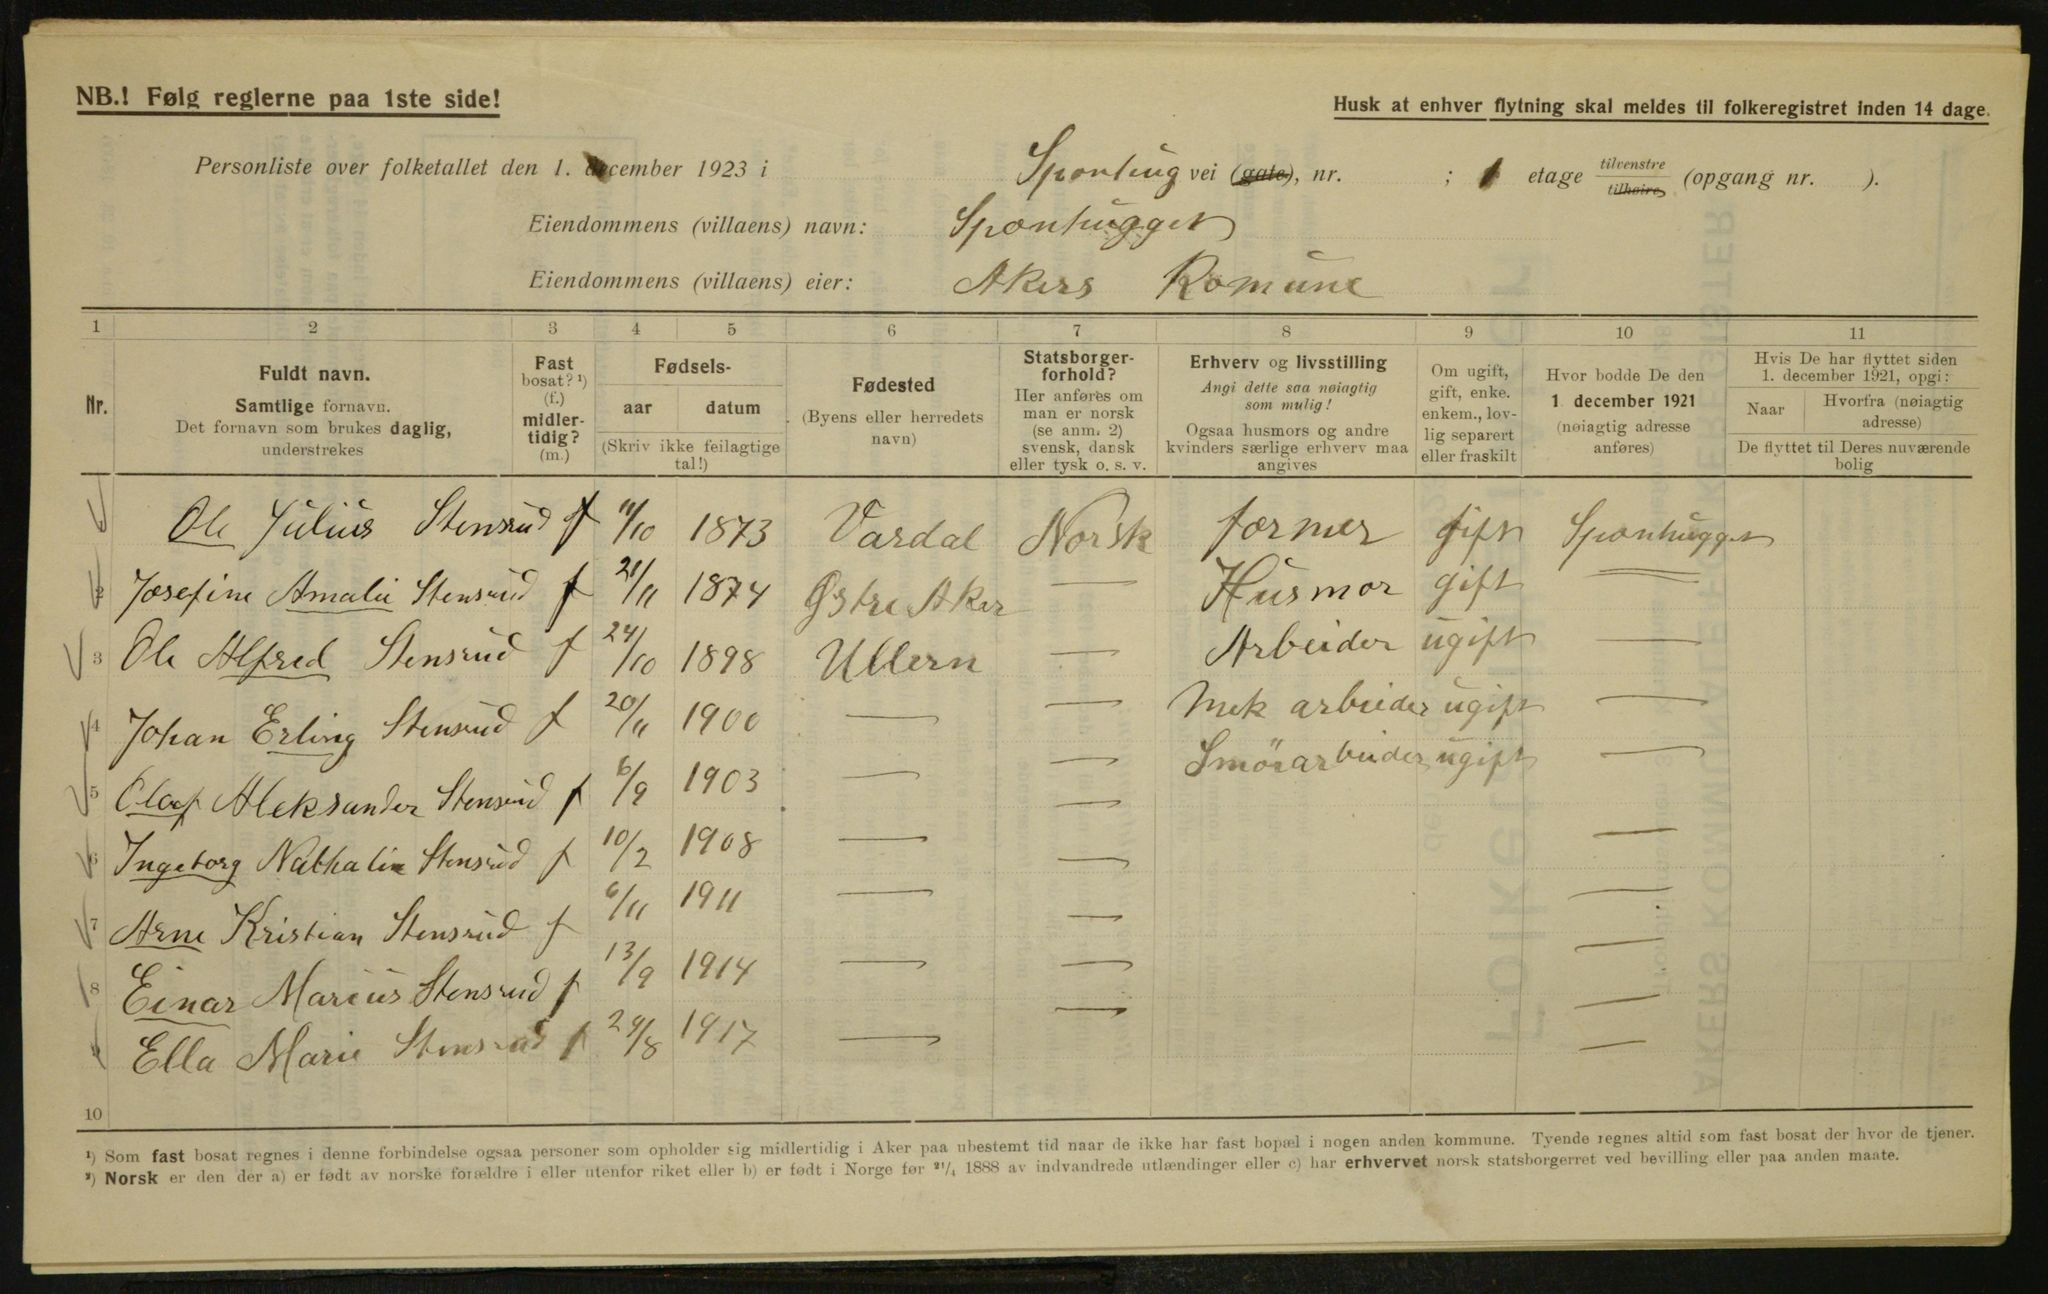 NB.! Følg reglerne paa 1ste side!
Husk at enhver flytning skal meldes til folkeregistret inden 14 dage.
Personliste over folketallet den 1. december 1923 i Sponhug vei (gate), nr. ; 1 etage tilvenstre tilhøire (opgang nr. ).
Eiendommens (villaens) navn: Sponhugget
Eiendommens (villaens) eier: Akers Komune
1 2 3 4 5 6 7 8 9 10 11
Nr.
Fuldt navn.
Samtlige fornavn.
Det fornavn som brukes daglig,
understrekes
Fast
bosat? ¹)
(f.)
midler-
tidig?
(m.)
Fødsels-
aar datum
(Skriv ikke feilagtige
tal!)
Fødested
(Byens eller herredets
navn)
Statsborger-
forhold?
Her anføres om
man er norsk
(se anm. 2)
svensk, dansk
eller tysk o. s. v.
Erhverv og livsstilling
Angi dette saa nøiagtig
som mulig!
Ogsaa husmors og andre
kvinders særlige erhverv maa
angives
Om ugift,
gift, enke.
enkem., lov-
lig separert
eller fraskilt
Hvor bodde De den
1 december 1921
(nøiagtig adresse
anføres)
Hvis De har flyttet siden
1. december 1921, opgi:
Naar Hvorfra (nøiagtig
adresse)
De flyttet til Deres nuværende
bolig
Ole Julius Stensrud f 11/10 1873 Vardal Norsk former gift Sponhugget
2 Josefine Amalie Stensrud f 21/11 1874 Østre Aker — Husmor gift —
3 Ole Alfred Stensrud f 24/10 1898 Ullern — Arbeider ugift —
4 Johan Erling Stensrud f 20/11 1900 — — Mek arbeider ugift —
5 Olaf Aleksander Stensrud f 6/9 1903 — — Smörarbeider ugift —
6 Ingeborg Nathalie Stensrud f 10/2 1908 — — —
7 Arne Kristian Stensrud f 6/11 1911 — — —
8 Einar Marius Stensrud f 13/9 1914 — — —
9 Ella Marie Stensrud f 29/8 1917 — — —
10
¹) Som fast bosat regnes i denne forbindelse ogsaa personer som opholder sig midlertidig i Aker paa ubestemt tid naar de ikke har fast bopæl i nogen anden kommune. Tyende regnes altid som fast bosat der hvor de tjener.
²) Norsk er den der a) er født av norske forældre i eller utenfor riket eller b) er født i Norge før ²¹/₄ 1888 av indvandrede utlændinger eller c) har erhvervet norsk statsborgerret ved bevilling eller paa anden maate.